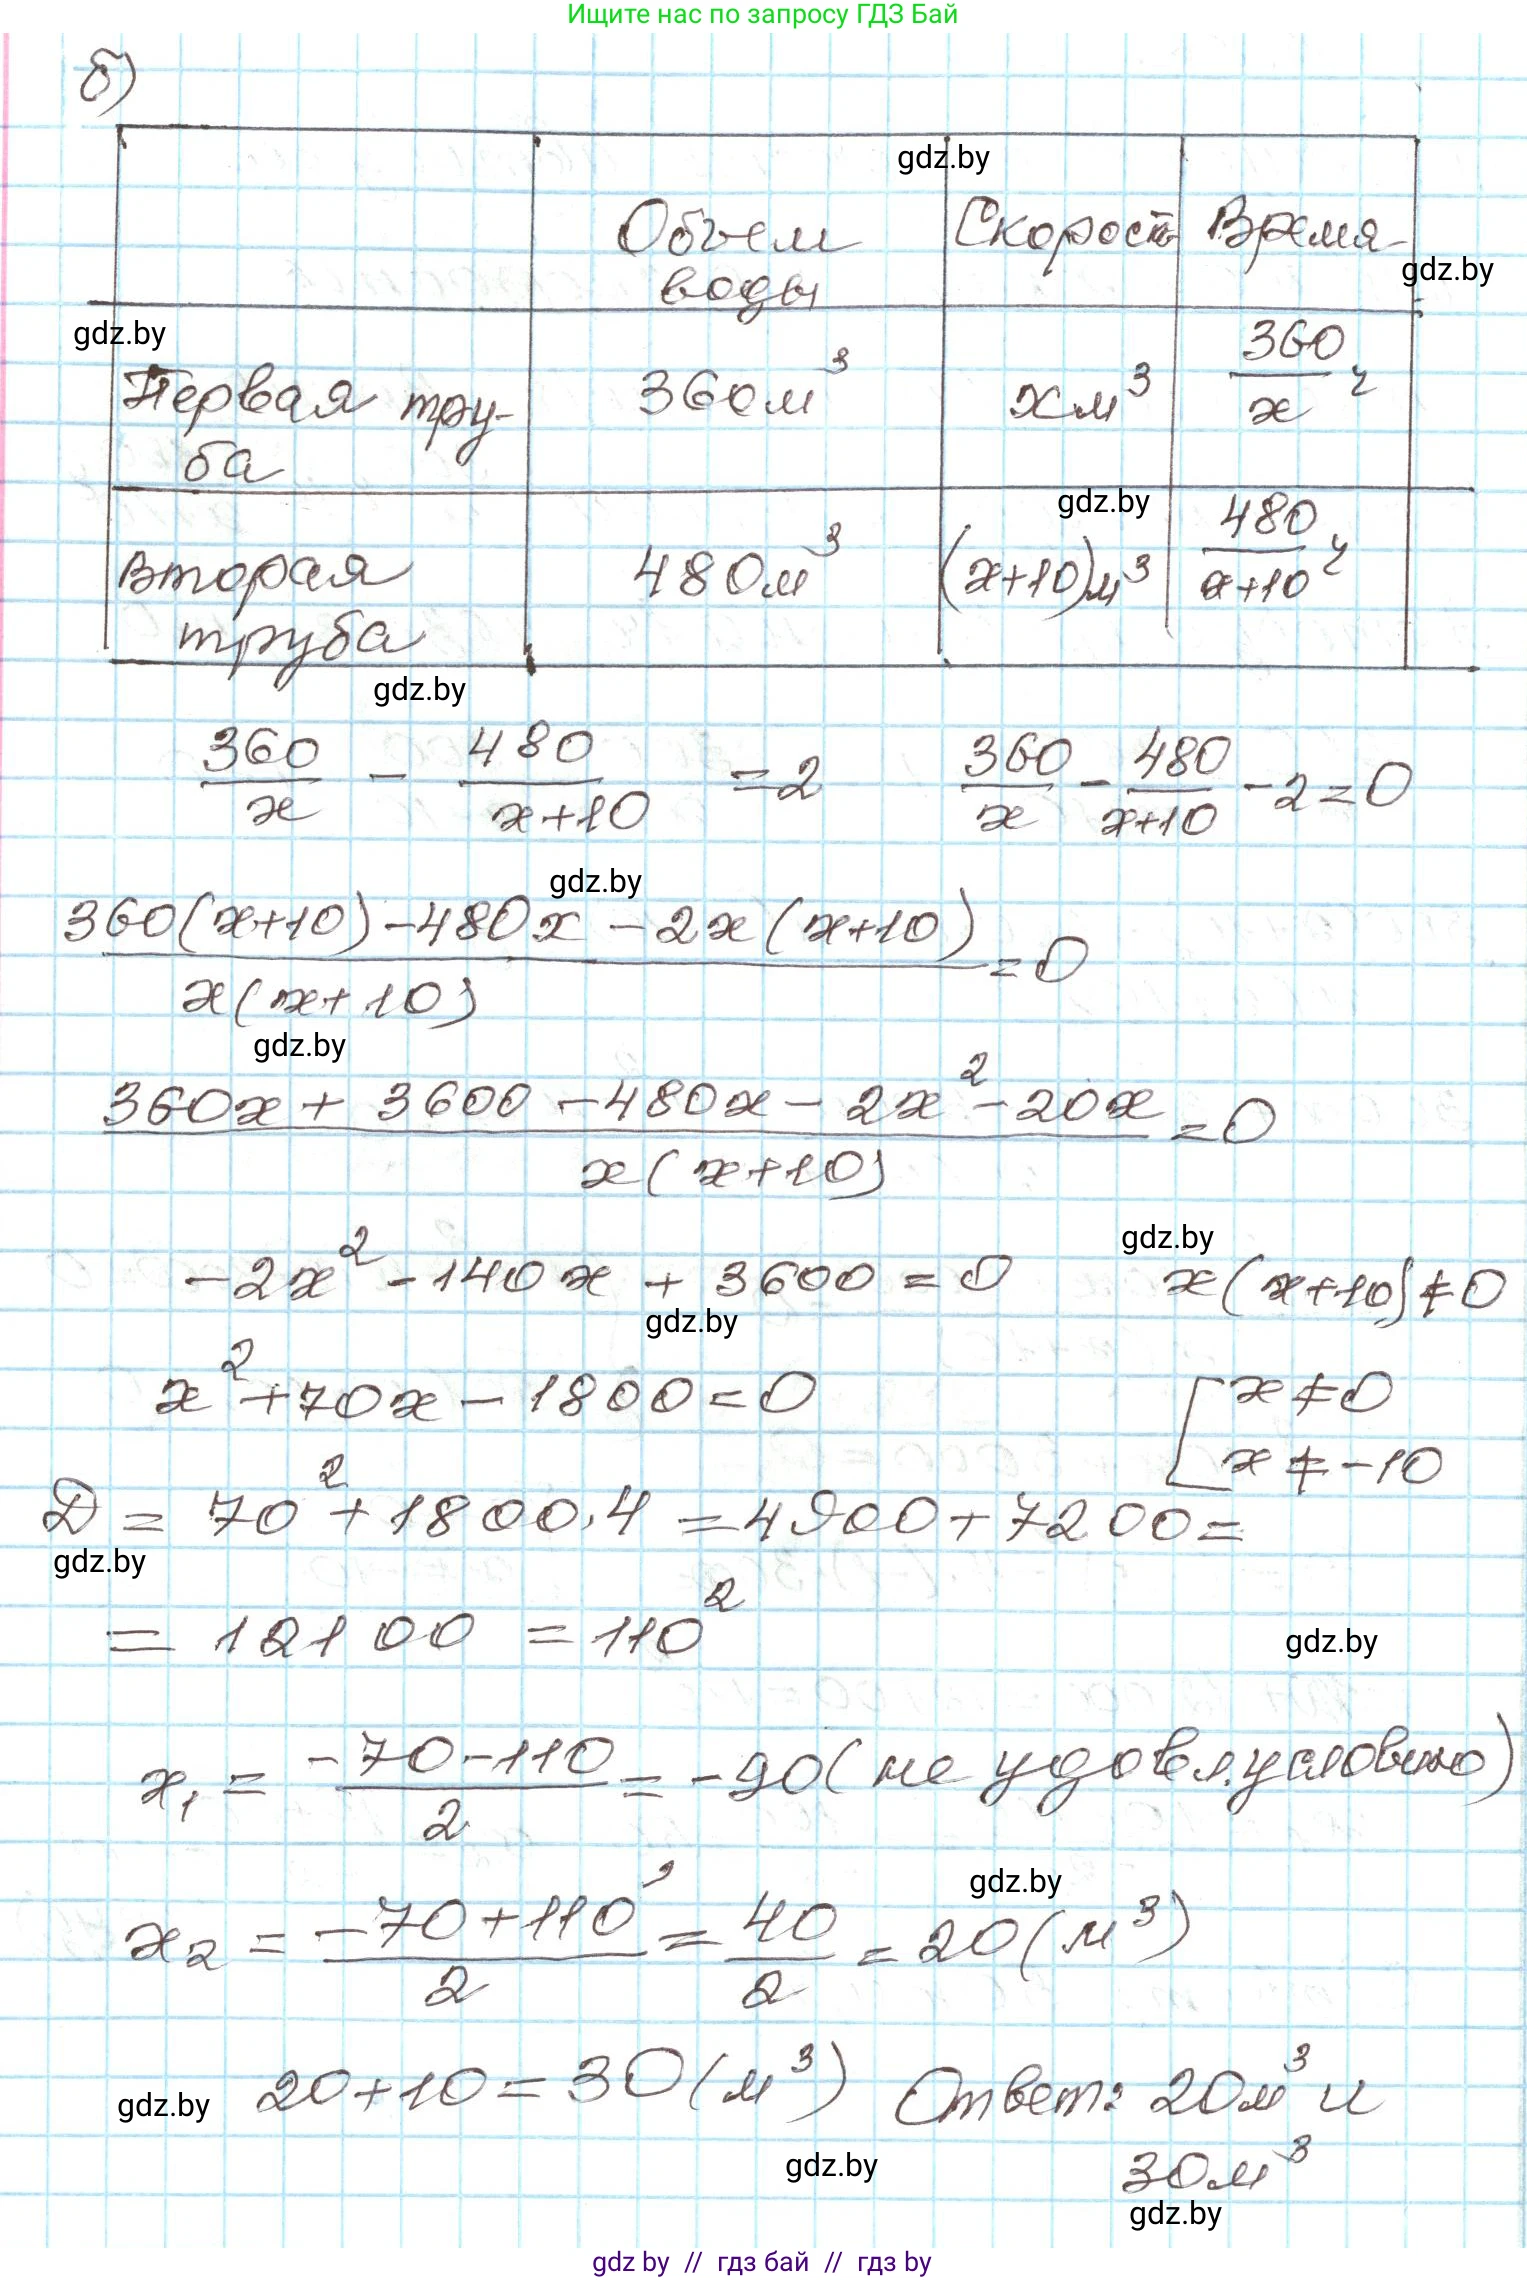 Ищите нас по запросу ГДЗ Бай
б)
gdz.by
Объем воды Скорость Время
gdz.by
gdz.by
Первая труба 360м³ xм³ 360/x ч
gdz.by
Вторая труба 480м³ (x+10)м³ 480/(x+10) ч
gdz.by
360/x - 480/(x+10) = 2 360/x - 480/(x+10) - 2 = 0
gdz.by
(360(x+10) - 480x - 2x(x+10))/(x(x+10)) = 0
gdz.by
(360x + 3600 - 480x - 2x² - 20x)/(x(x+10)) = 0
gdz.by
-2x² - 140x + 3600 = 0 x(x+10) ≠ 0
gdz.by
x² + 70x - 1800 = 0 [x ≠ 0
x ≠ -10
D = 70² + 1800·4 = 4900 + 7200 =
gdz.by
= 12100 = 110²
gdz.by
x₁ = (-70-110)/2 = -90 (не удовл. условию)
gdz.by
x₂ = (-70+110)/2 = 40/2 = 20 (м³)
gdz.by 20+10 = 30 (м³) Ответ: 20м³ и
gdz.by 30м³
gdz.by
gdz by // гдз бай // гдз by